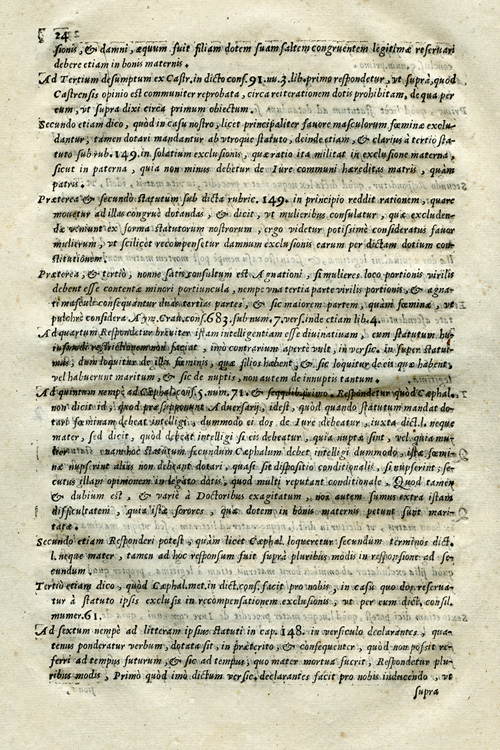 24
sionis, & damni, æquum fuit filiam dotem suam saltem congruentem legitimæ reservari
debere etiam in bonis maternis.
Ad Tertium desumptum ex Castr. in dicto cons. 91. nu. 3. lib. primo respondetur, vt suprà, quòd
Castrensis opinio est communiter reprobata, circa reiterationem dotis prohibitam, de qua per
eum, vt supra dixi circa primum obiectum.
Secundo etiam dico, quòd in casu nostro, licet principaliter fauore masculorum fœminæ exclu-
dantur, tamen dotari mandantur ab vtroque statuto, deinde etiam, & clarius à tertio sta-
tuto sub rub. 149. in solatium exclusionis, quæ ratio ita militat in exclusione materna,
sicut in paterna, quia non minus debetur de Iure communi hæreditas matris, quàm
patris.
Præterea & secundo statutum sub dicta rubric. 149. in principio reddit rationem, quare
mouetur ad illas congruè dotandas, & dicit, vt mulieribus consulatur, quæ excluden-
dæ veniunt ex forma statutorum nostrorum, ergo videtur potissimè consideratus fauor
mulierum, vt scilicet recompensetur damnum exclusionis earum per dictam dotium con-
stitutionem.
Præterea, & tertiò, nonne satis consultum est Agnationi, si mulieres loco portionis virilis
debent esse contentæ minori portiuncula, nempe vna tertia parte virilis portionis, & agna-
ti masculi consequantur duas tertias partes, & sic maiorem partem, quàm fœminæ, vt
pulchrè considera Aym. Crau. cons. 683. sub num. 7. vers. inde etiam lib. 4.
Ad quartum Respondetur breuiter istam intelligentiam esse diuinatiuam, cum statutum hu-
iusmodi restrictionem non faciat, imò contrarium apertè vult, in versic. in super statui-
mus; dum loquitur de illis fœminis, quæ filios habent, & sic loquitur de eis quæ habent,
vel habuerunt maritum, & sic de nuptis, non autem de innuptis tantum.
Ad quintum nempè ad Cæphal. cons. 5. num. 71. & seqq. lib. primo. Respondetur quòd Cæphal.
non dicit id, quod præsupponunt Aduersarij, idest, quòd quando statutum mandat do-
tari fœminam debeat intelligi, dummodo ei dos de Iure debeatur, iuxta dict. l. neque
mater, sed dicit, quòd debeat intelligi si eis debeatur, quia nuptæ sint, vel quia mu-
enamhoc statutum secundum Cæphalum debet intelligi dummodo, istæ fœmi-
næ nupserint alius non debeant dotari, quasi sit dispositio conditionalis, si nupserint; se-
cutus illam opinionem in legato dotis, quod multi reputant conditionale. Quod tamen
& dubium est, & variè à Doctoribus exagitatum, nos autem sumus extra istam
difficultatem, quia istæ sorores, quæ dotem in bonis maternis petunt sunt mari-
tatæ.
Secundo etiam Responderi potest, quòd licet Cæphal. loqueretur secundum terminos dict.
l. neque mater, tamen ad hoc responsum fuit suprà pluribus modis in responsione ad se-
cundum.
Tertiò etiam dico, quòd Cæphal. met. in dict. cons. facit pro nobis, in casu quo dos reserua-
tur à statuto ipsis exclusis in recompensationem exclusionis, vt per eum dict. consil.
numer. 61.
Ad sextum nempè ad litteram ipsius statuti in cap. 148. in versiculo declarantes, qua-
tenus ponderatur verbum, dotata sit, in præterito, & consequenter, quòd non possit re-
ferri ad tempus futurum, & sic ad tempus, quo mater mortua fuerit, Respondetur plu-
ribus modis, Primò quòd imò dictum versic. declarantes facit pro nobis inducendo, vt
supra